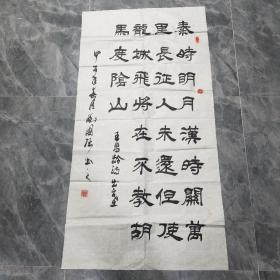 秦時明月漢時關萬
里長征人未還但使
龍城飛將在不教胡
馬度陰山
王昌齡詩出塞